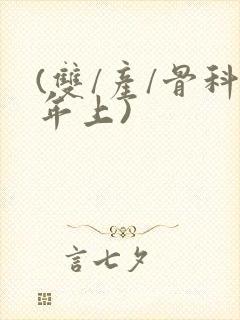 (雙/產/骨科
年上)
言七夕